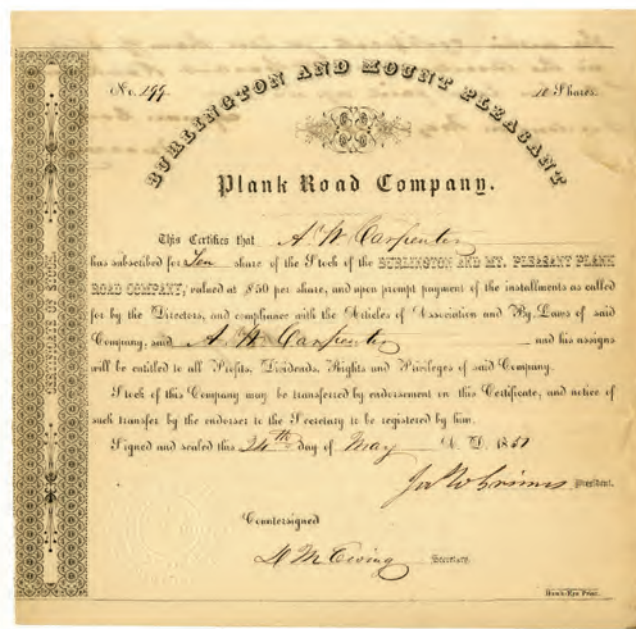 No. 199.
10 Shares.
BURLINGTON AND MOUNT PLEASANT
Plank Road Company.
This Certifies that A. W Carpenter
has subscribed for Ten share of the Stock of the BURLINGTON AND MT. PLEASANT PLANK
ROAD COMPANY, valued at $50 per share, and upon prompt payment of the installments as called
for by the Directors, and compliance with the Articles of Association and By-Laws of said
Company, said A. W Carpenter and his assigns
will be entitled to all Profits, Dividends, Rights and Privileges of said Company.
Stock of this Company may be transferred by endorsement on this Certificate, and notice of
such transfer by the endorser to the Secretary to be registered by him.
Signed and sealed this 24th day of May A. D. 1851
Jas W Grimes President.
Countersigned
Secretary
Hawk-Eye Print.
CERTIFICATE OF STOCK